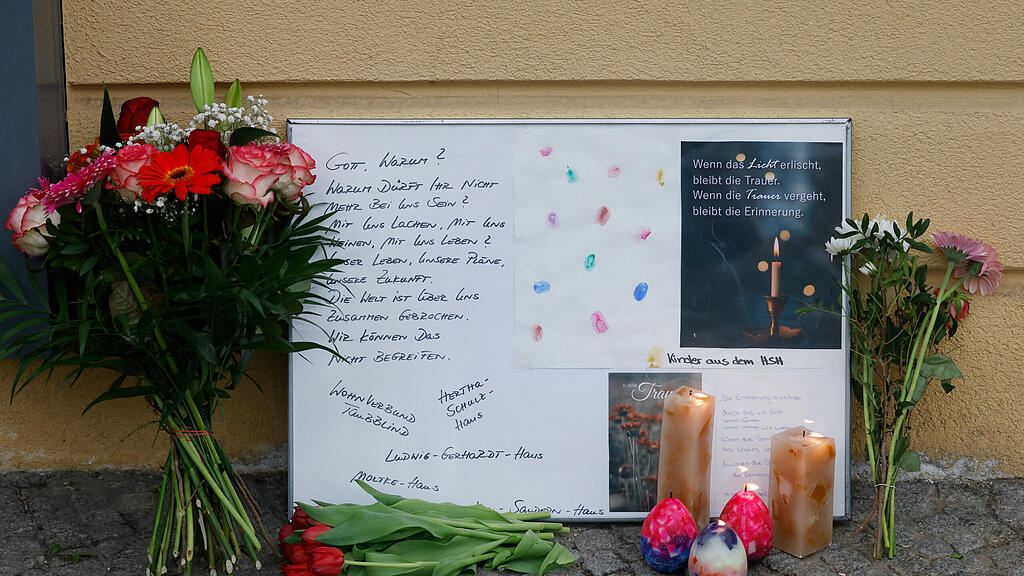 GOTT, WARUM?
WARUM DÜRFT IHR NICHT
MEHR BEI UNS SEIN?
MIT UNS LACHEN, MIT UNS
WEINEN, MIT UNS LEBEN?
UNSER LEBEN, UNSERE PLÄNE,
UNSERE ZUKUNFT.
DIE WELT IST ÜBER UNS
ZUSAMMEN GEBROCHEN.
WIR KÖNNEN DAS
NICHT BEGREIFEN.
WOHNVERBUND
TAUBBLIND
HERTHA-
SCHULZ-
HAUS
LUDWIG-GERHARDT-HAUS
MOLTKE-HAUS
HAUS
Wenn das Licht erlischt,
bleibt die Trauer.
Wenn die Trauer vergeht,
bleibt die Erinnerung.
Kinder aus dem HSH
Die Erinnerung ist ein
durch das wir Euch